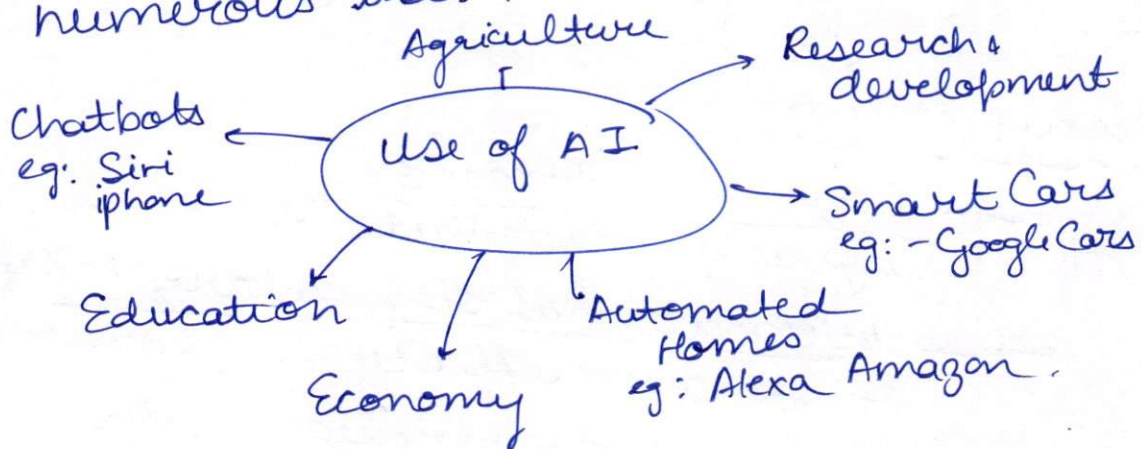 numerous
Agriculture
Research &
development
Chatbots
eg: Siri
iphone
Use of AI
Smart Cars
eg: - Google Cars
Education
Automated
Homes
eg: Alexa Amazon.
Economy